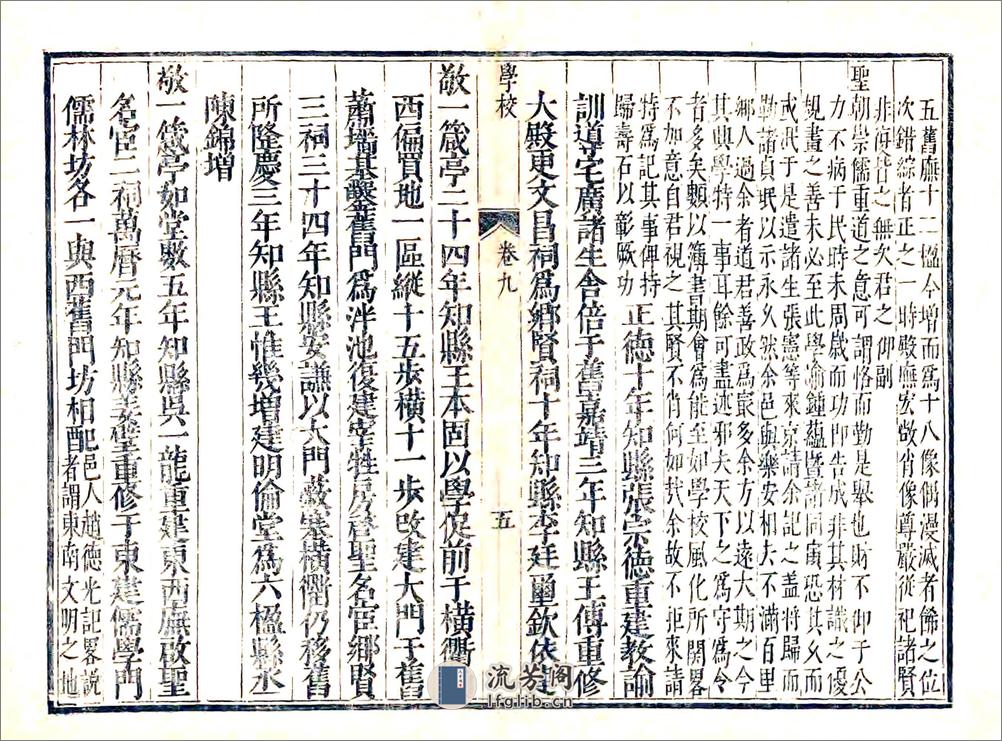 五舊廡十二楹今增而爲十八像偶漫滅者餙之位
次錯綜者正之一時殿廡宏敞肖像尊嚴從祀諸賢
非復昔之無次君之仰副
聖朝崇儒重道之意可謂恪而勤是舉也財不仰于公
力不病于民時未周歲而功即告成非其材識之優
規畫之善未必至此學諭鍾藴暨諸同寅恐其久而
或泯于是遣諸生張憲等來京請余記之盖將歸而
勒諸貞珉以示永久然余邑與樂安相去不滿百里
鄉人過余者道君善政爲最多余方以遠大期之今
其興學特一事耳餘可盡述邪夫天下之爲守爲令
者多矣類以簿書期會爲能至如學校風化所關畧
不加意自君視之其賢不肖何如哉余故不拒來請
特爲記其事俾持
歸壽石以彰厥功 正德十年知縣張宗德重建教諭
訓導宅廣諸生舍倍于舊嘉靖三年知縣王傅重修
大殿更文昌祠爲鄉賢祠十年知縣李廷璽欽依建
學校 卷九 五
敬一箴亭二十四年知縣王本固以學促前于橫衢
西偏買地一區縱十五步橫十一步改建大門于舊
蕭瑞基鑿舊門爲泮池復建宰牲房啓聖名宦鄉賢
三祠三十四年知縣安謙以大門蔽塞橫衢仍移舊
所隆慶三年知縣王惟幾增建明倫堂爲六楹縣丞
陳錦增
敬一箴亭如堂數五年知縣吳一龍重建東西廡啟聖
名宦二祠萬曆元年知縣姜璧重修于東建儒學門
儒林坊各一與西舊門坊相配邑人趙德光記畧說
者謂東南文明之地
流芳阁
lfglib.cn